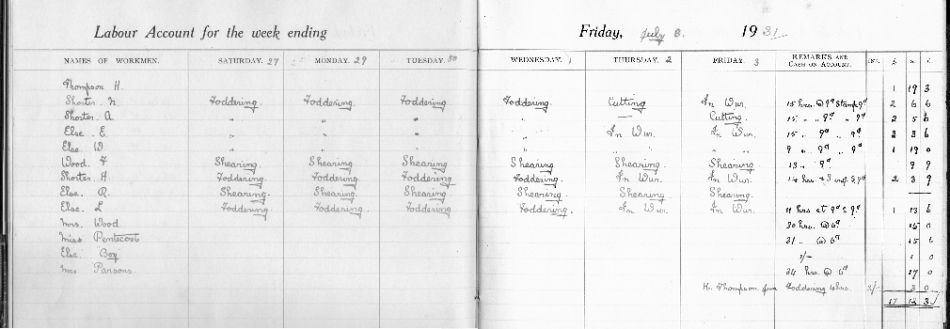 Labour Account for the week ending Friday, July 3. 1931
NAMES OF WORKMEN. SATURDAY. 27 MONDAY. 29 TUESDAY. 30 WEDNESDAY. 1 THURSDAY. 2 FRIDAY. 3 REMARKS AND CASH ON ACCOUNT. INS. £ s. d.
Thompson H. 1 19 3
Shorter. N. Foddering. Foddering. Foddering. Foddering. Cutting In Wur. 15 hrs. @ 9d Stamp 9d 2 6 6
Shorter. A. " " " " — Cutting. 15 " " 9d " 9d 2 5 6
Else. E. " " " " In Wur. In Wur. 15 " 9d " 9d. 2 3 6
Else. W " " " " " " 9 " 9d " 9d 1 19 0
Wood. F Shearing. Shearing Shearing Shearing Shearing Shearing 13 " 9d 9 9
Shorter. H Foddering. Foddering. Foddering Foddering. In Wur. In Wur. 14 hrs 2 3 9
Else. R. Shearing. Shearing Shearing. Shearing. Shearing Shearing.
Else. L Foddering. Foddering. Foddering Foddering. In Wur. In Wur. 11 hrs at 9d & 9d. 1 13 6
Mrs. Wood 30 hrs. @ 6d 15 0
Miss Pentecost 31 " @ 6d 15 6
Else. Boy 1/- 1 0
Mrs Parsons. 34 hrs. @ 6d 17 0
H. Thompson from Foddering 4 hrs. 3/- 3 0
17 12 3